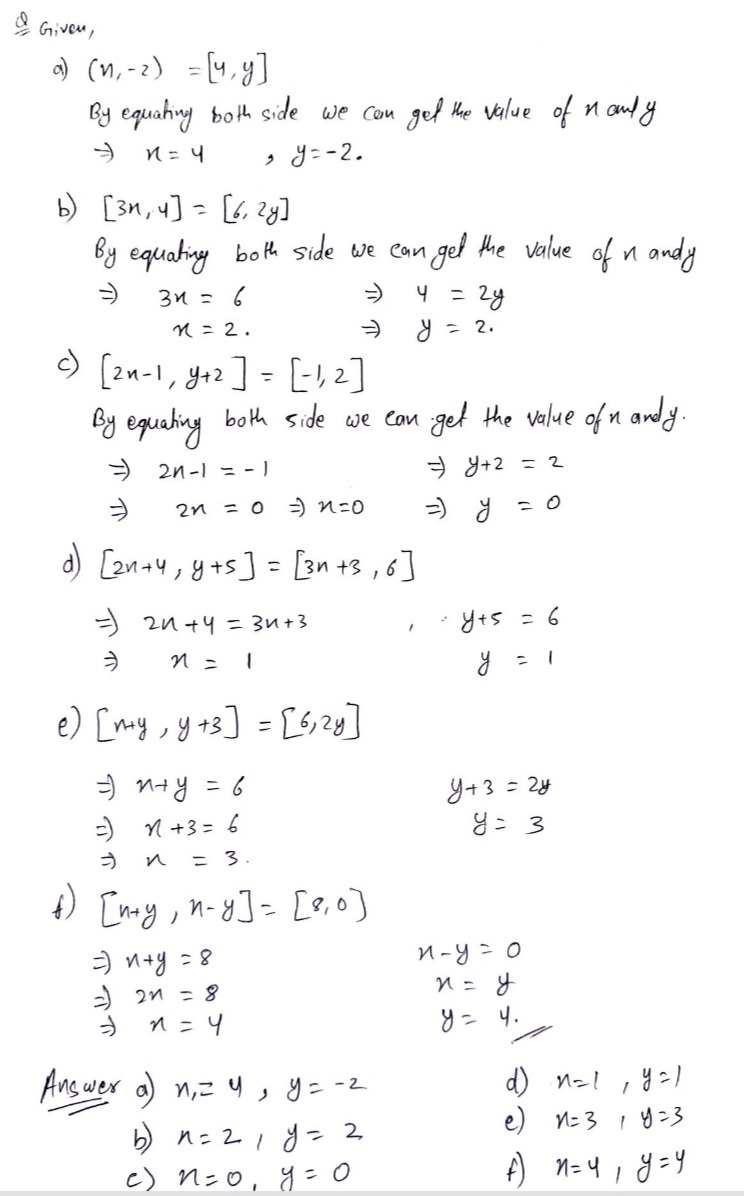 Q Given,
a) (x,-2) = [4,y]
By equating both side we can get the value of x and y
⇒ x = 4 , y = -2.
b) [3x,4] = [6,2y]
By equating both side we can get the value of x and y
⇒ 3x = 6 ⇒ 4 = 2y
x = 2. ⇒ y = 2.
c) [2x-1, y+2] = [-1,2]
By equating both side we can get the value of x and y.
⇒ 2x-1 = -1 ⇒ y+2 = 2
⇒ 2x = 0 ⇒ x=0 ⇒ y = 0
d) [2x+4, y+5] = [3x+3,6]
⇒ 2x+4 = 3x+3 , y+5 = 6
⇒ x = 1 y = 1
e) [x+y, y+3] = [6,2y]
⇒ x+y = 6 y+3 = 2y
⇒ x+3 = 6 y = 3
⇒ x = 3.
f) [x+y, x-y] = [8,0]
⇒ x+y = 8 x-y = 0
⇒ 2x = 8 x = y
⇒ x = 4 y = 4.
Answer a) x,= 4, y = -2 d) x=1, y=1
b) x=2, y=2 e) x=3, y=3
c) x=0, y=0 f) x=4, y=4